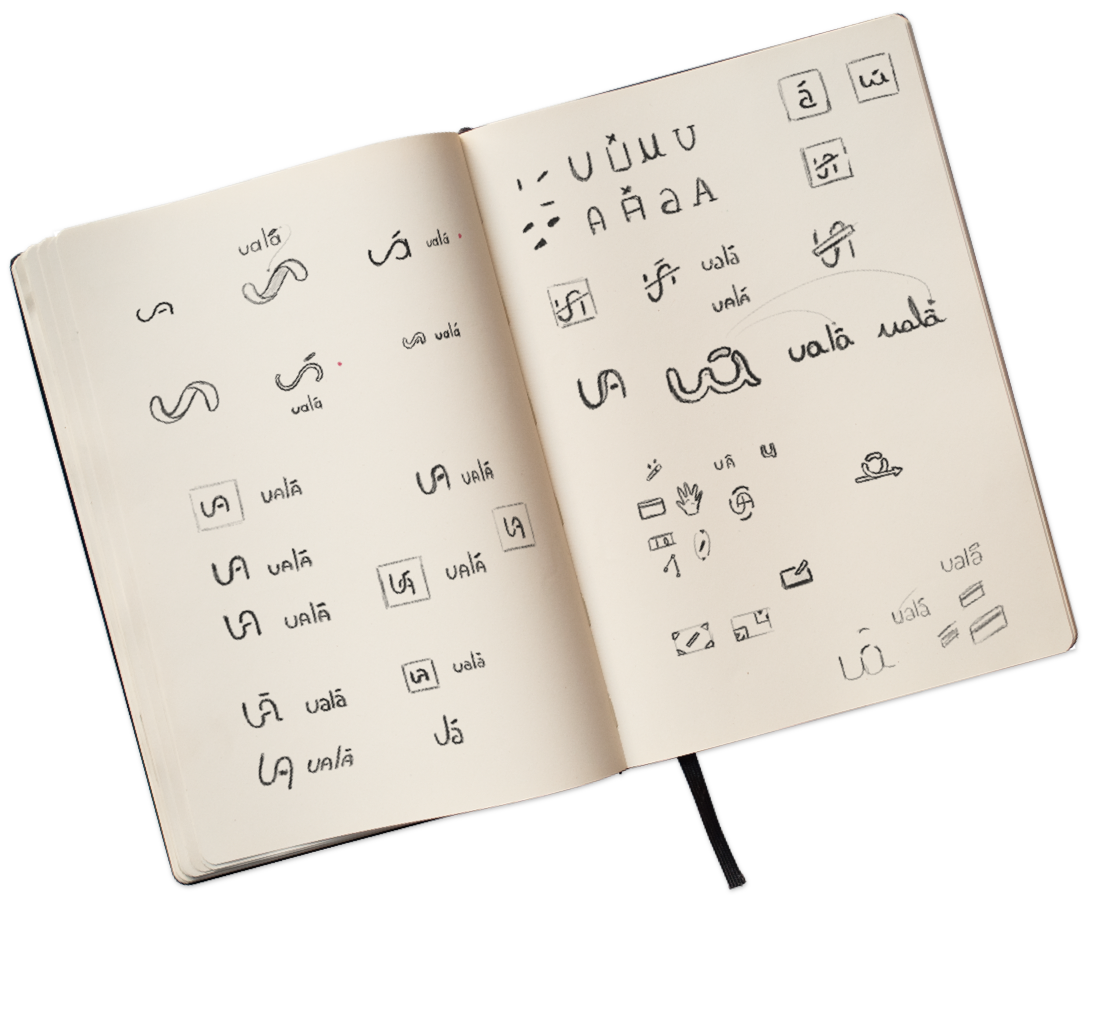 ualá
uá ualá
ua
ualá
ualá
UA UALÁ
UA UALÁ
UA
UA UALÁ
UA UALÁ
UA UALÁ
UA ualá
UÁ ualá
UA UALÁ
Já
á
U Ů u U
A Å a A
ualá
UALÁ
UA
uā
ualá
ualá
UÂ
ualá
ualá
uâ